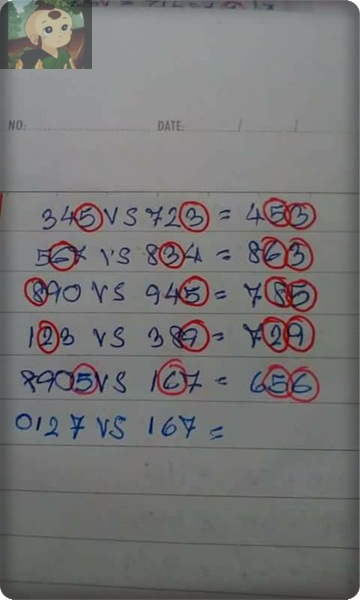 NO: DATE: / /
345 VS 723 = 453
567 VS 834 = 863
890 VS 945 = 785
123 VS 389 = 729
8905 VS 167 = 656
0127 VS 167 =